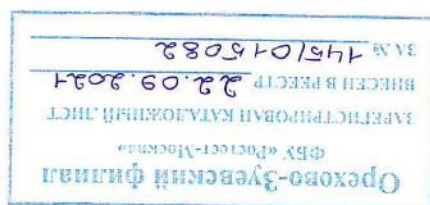 Орехово-Зуевский филиал
ФБУ «Ростест-Москва»
ЗАРЕГИСТРИРОВАН КАТАЛОЖНЫЙ ЛИСТ
ВНЕСЕН В РЕЕСТР 22.09.2021
ЗА № 145/015082